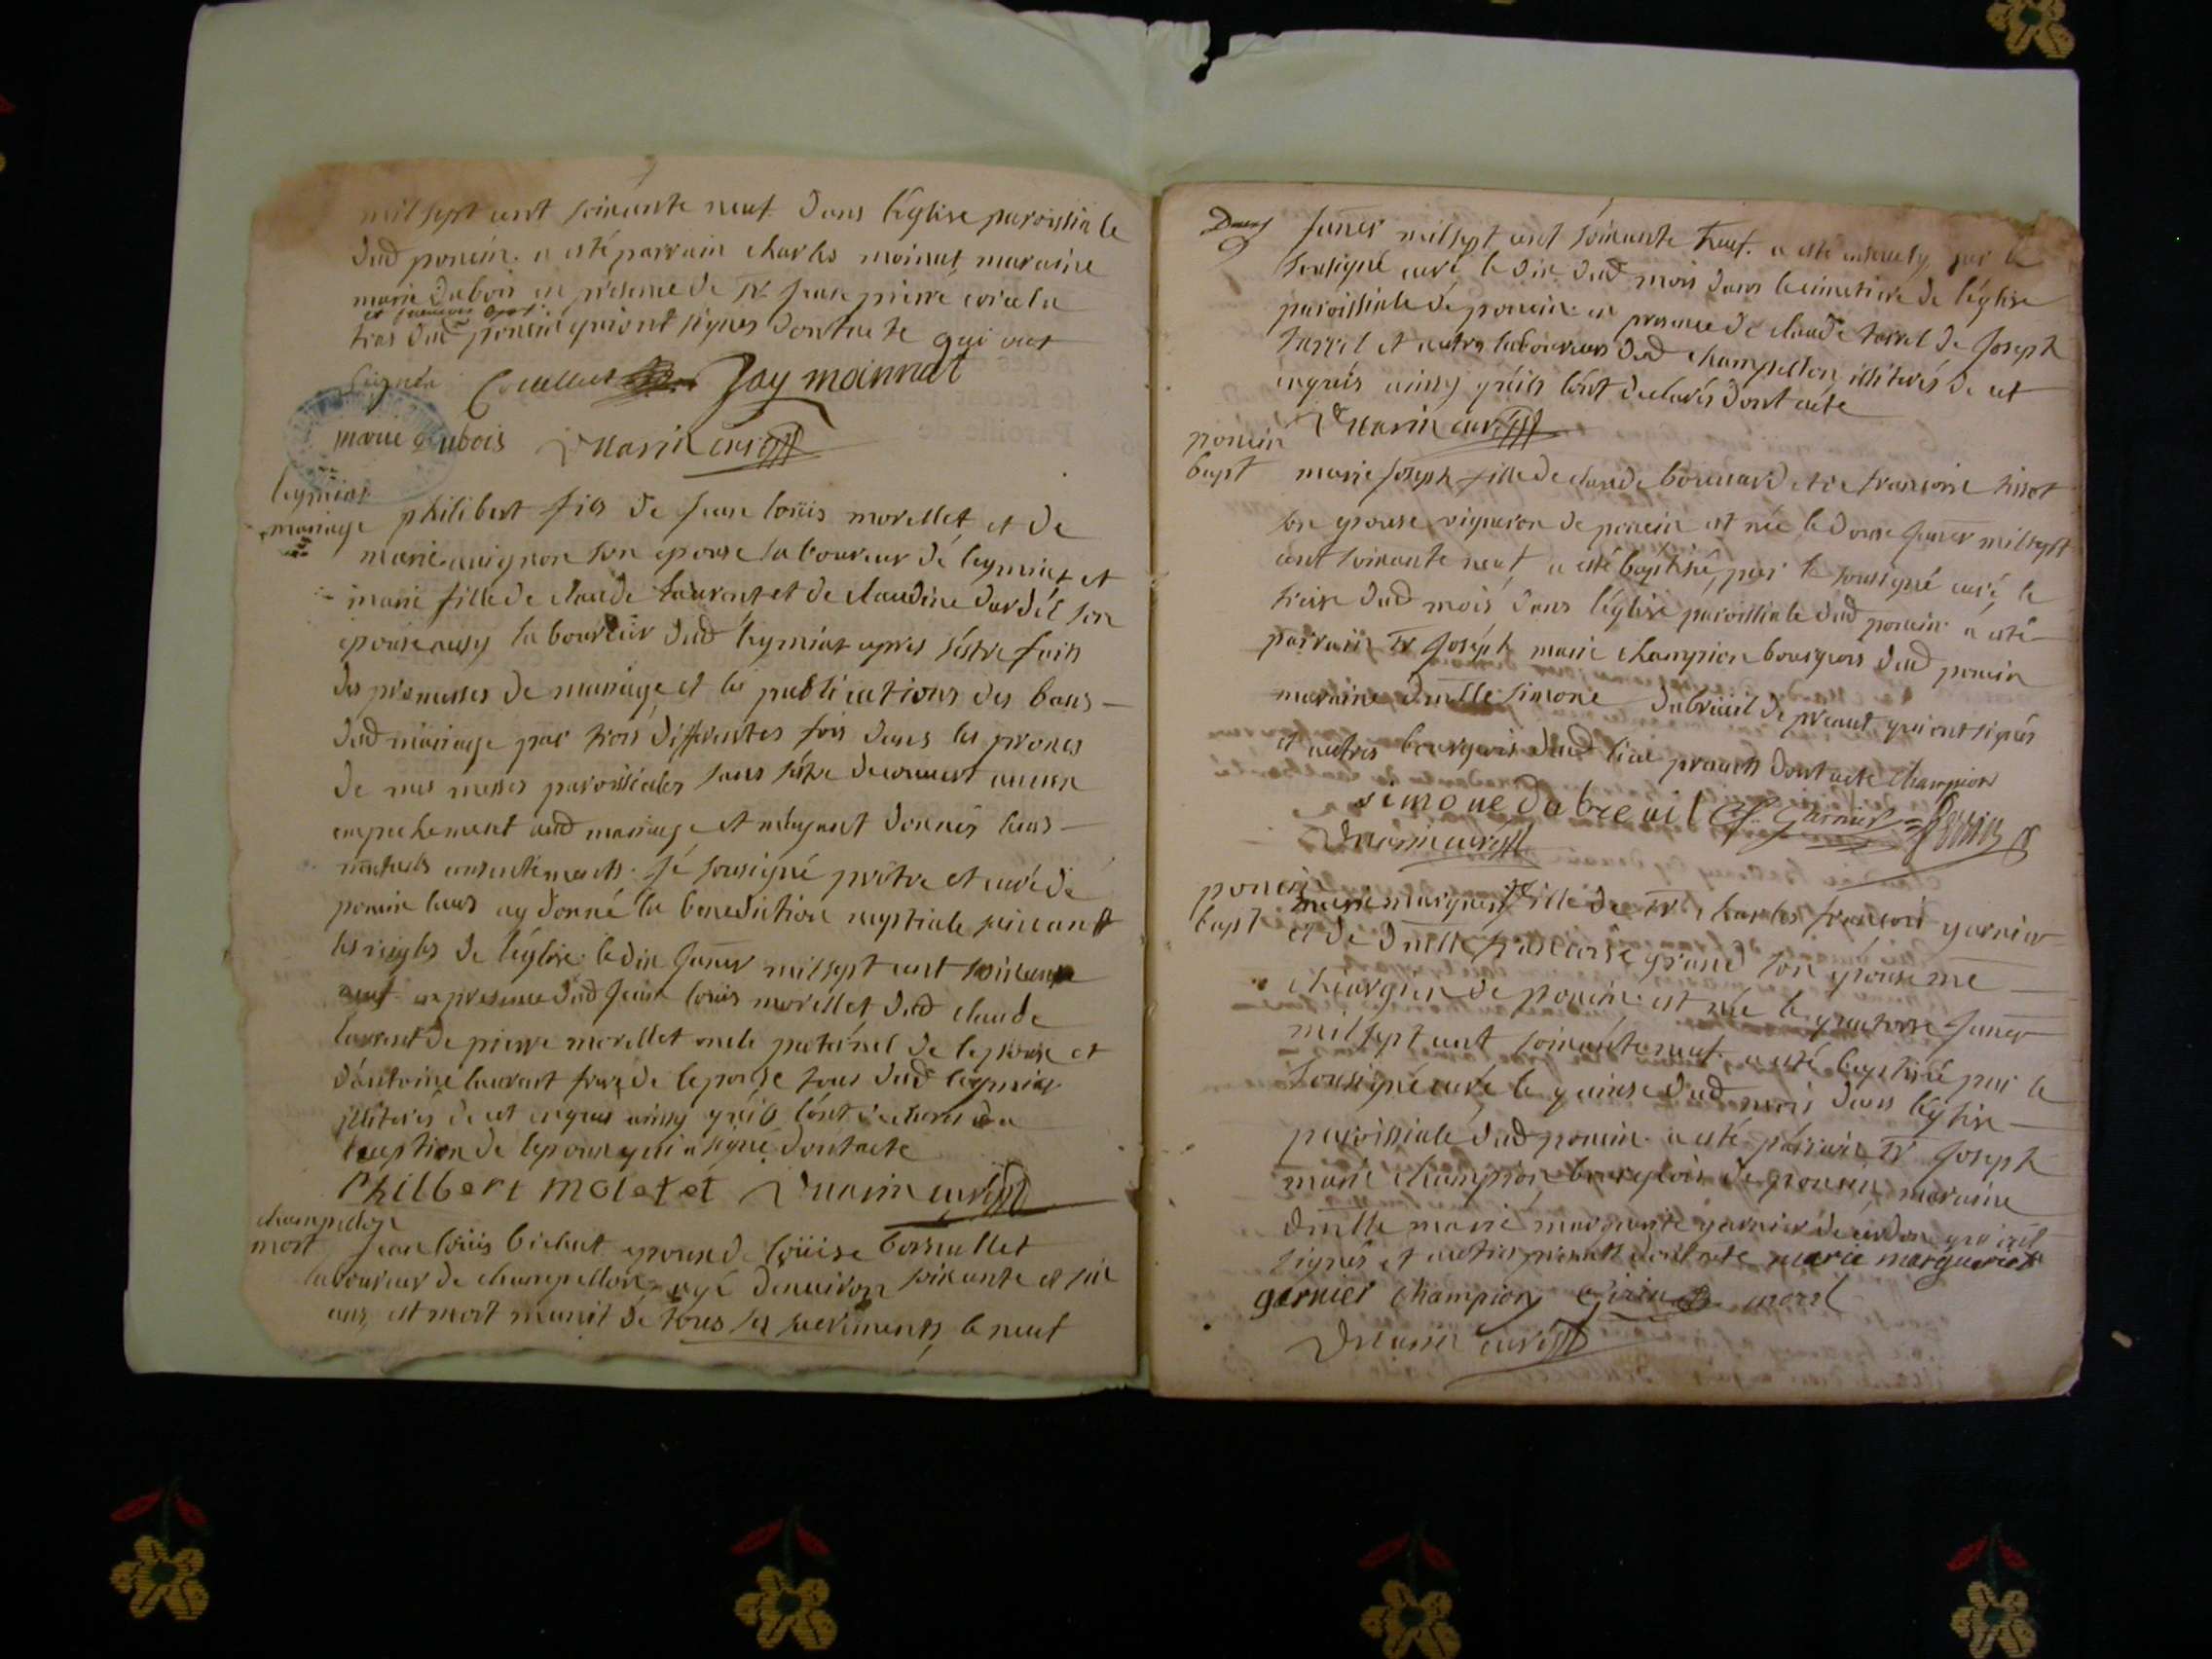 mil sept cent soixante neuf dans l'église paroissiale
dud poncin a esté parrain charles moinat maraine
marie dubois en presence de sr jean pierre
tous dud poncin qui ont signes dont acte qui ont
signés Jay moinnat
marie dubois curé
leymiat
mariage
philibert fils de jean loüis morellet et de
marie avignon son epouse laboureur de leymiat et
marie fille de claude laurent et de claudine dardel son
epouse aussy laboureur dud leymiat apres s'éstre faits
des promesses de mariage et les publications des bans
dud mariage par trois differentes fois dans les prones
de nos messes paroissiales sans s'éstre decouvert aucun
empechement aud mariage et m'ayant donnés leurs
mutuels consentements je sousigné prêtre et curé de
poncin leurs ay donné la benediction nuptiale suivant
les reigles de l'église le dix janer mil sept cent soixante
neuf en presence dud jean loüis morellet dud claude
laurent de pierre morellet oncle paternel de lepoux et
d'antoine laurent frere de lepouse tous dud leymiat
illiterés de ce enquis ainsy qu'ils l'ont declarés a
lexeption de lepoux qui a signé dont acte
Philbert moletet curé
champellon
mort
jean loüis bichat epoux de loüise bornallet
laboureur de champellon agé denviron soixante et six
ans est mort munit de tous ses sacrements le neuf
janer mil sept cent soixante neuf a esté par le
sousigné curé le dix dud mois dans le cimetiere de l'église
paroissiale de poncin en presence de claude tarrel de joseph
tarrel et autres laboureurs dud champellon illiterés de ce
enquis ainsy qu'ils l'ont declarés dont acte
curé
poncin
bapt
marie joseph fille de claude et de francoise tissot
son epouse vigneron de poncin est née le douze janer mil sept
cent soixante neuf a esté baptisée par le sousigné curé le
treize dud mois dans l'église paroissiale dud poncin a esté
parrain sr joseph marie champion bourgeois dud poncin
maraine dmlle simone dubreüil de preaut qui ont signés
et autres bourgeois dud lieu presents dont acte champion
simone dubreuil Garnier
curé
poncin
bapt
marie margueritte fille de sr charles francois garnier
et de dmlle francoise grand son epouse me
chirurgien de poncin est née le quatorze janer
mil sept cent soixante neuf a esté baptisée par le
sousigné curé le quinze dud mois dans l'église
paroissiale dud poncin a esté parrain sr joseph
marie champion bourgeois de poncin maraine
dmlle marie marguerite garnier de cerdon qui ont
signés et autres presents dont acte marie marguerite
garnier champion morel
curé